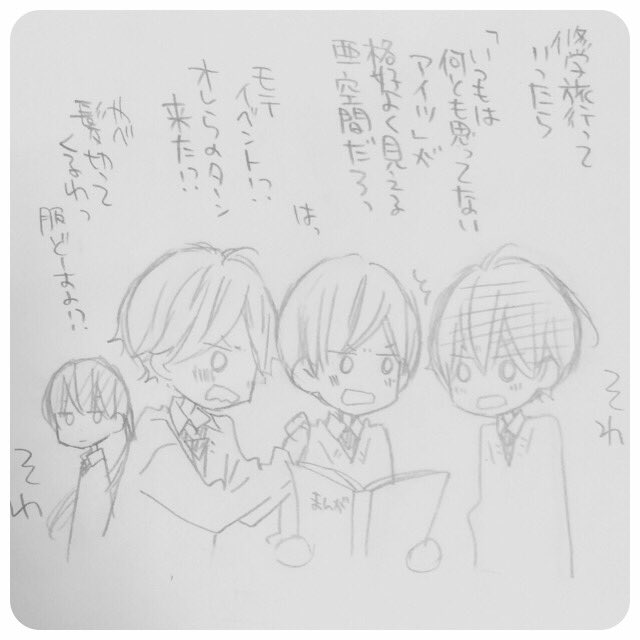 修学旅行って
いったら
「いつもは
何とも思ってない
アイツ」が
格好よく見える
亜空間だろっ
はっ
モテ
イベント!?
オレらのターン
来た!?
やべ
髪切って
くるわっ
服どーすよ!?
そわ
そわ
まんが